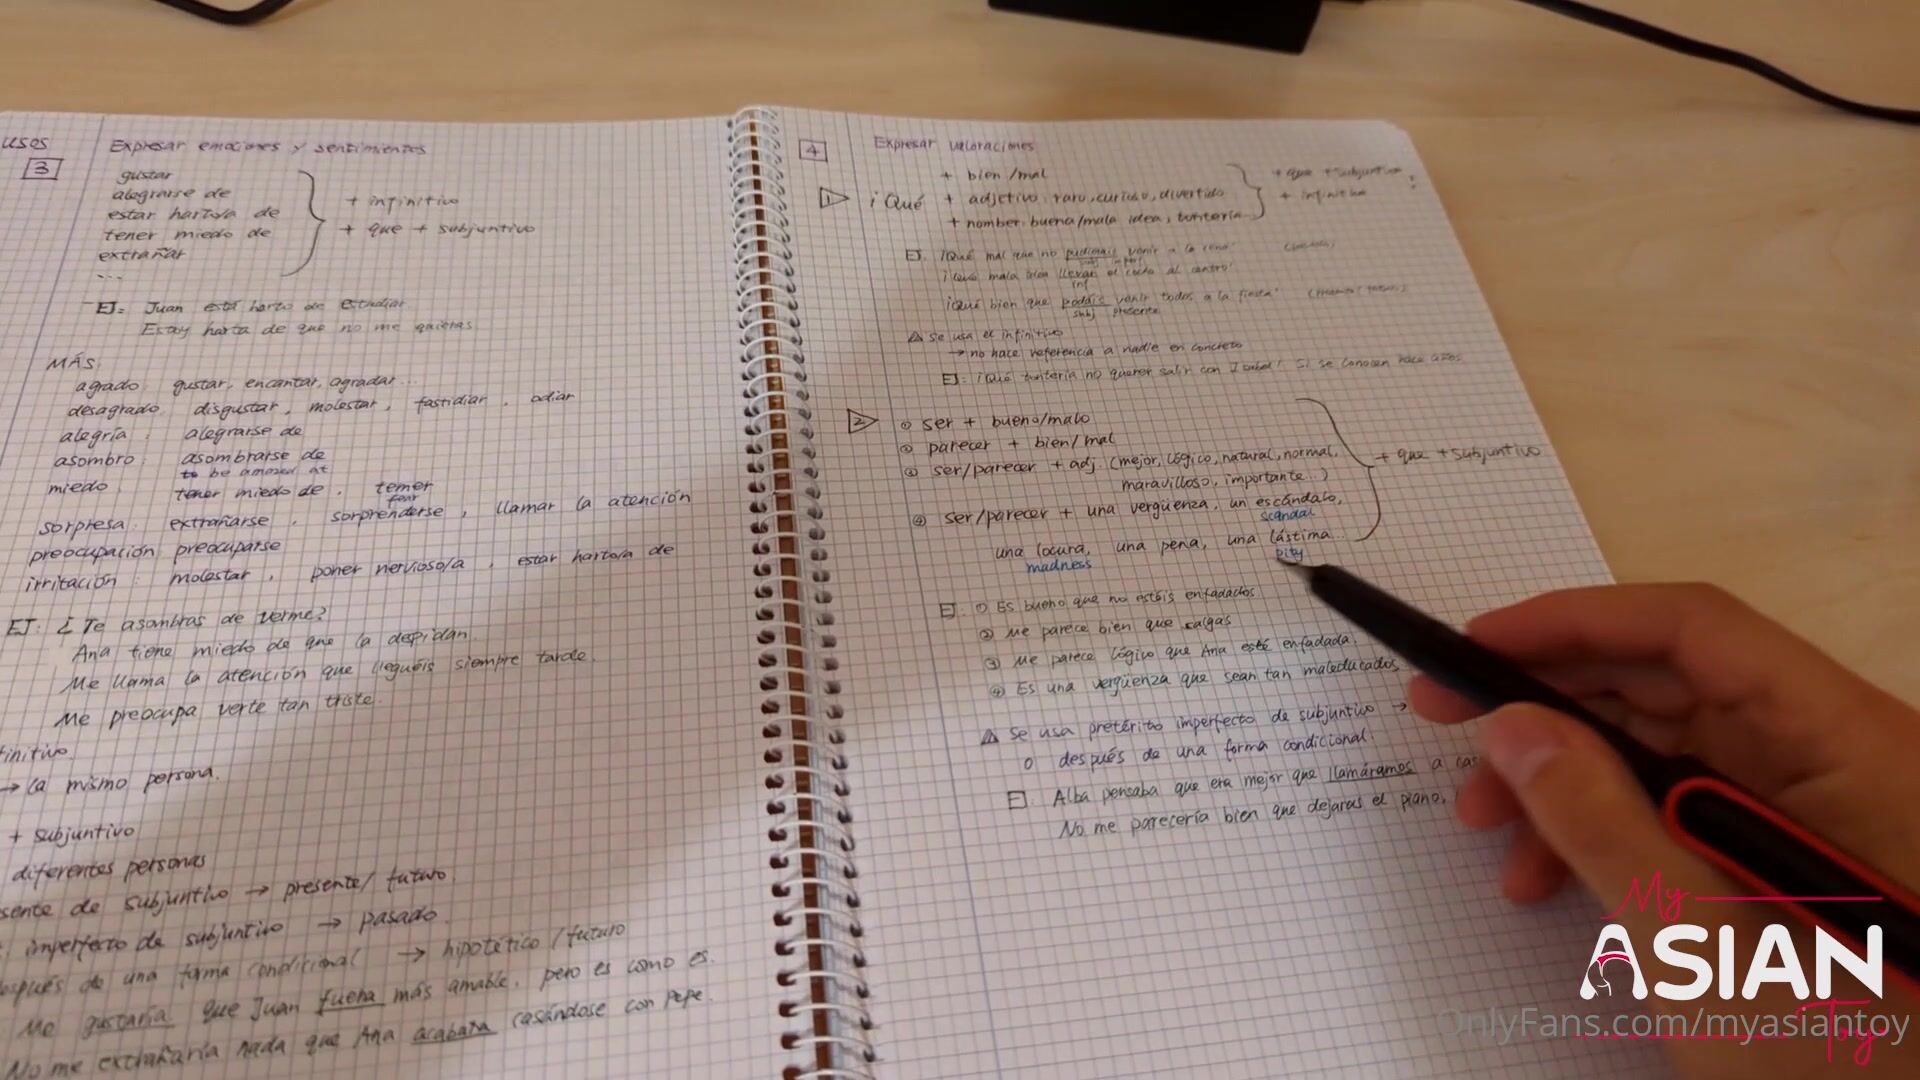 usos
3
Expresar emociones y sentimientos
gustar
alegrarse de
estar harto/a de
tener miedo de
extrañar
...
+ infinitivo
+ que + subjuntivo
EJ: Juan está harto de estudiar.
Estoy harta de que no me quieras.
MÁS:
agrado: gustar, encantar, agradar...
desagrado: disgustar, molestar, fastidiar, odiar
alegría: alegrarse de
asombro: asombrarse de
to be amazed at
miedo: tener miedo de, temer
fear
sorpresa: extrañarse, sorprenderse, llamar la atención
preocupación: preocuparse
irritación: molestar, poner nervioso/a, estar harto/a de
EJ: ¿Te asombras de verme?
Ana tiene miedo de que la despidan.
Me llama la atención que lleguéis siempre tarde.
Me preocupa verte tan triste.
finitivo
→ la mismo persona.
+ subjuntivo
diferentes personas
sente de subjuntivo → presente/futuro.
imperfecto de subjuntivo → pasado.
después de una forma condicional → hipotético/futuro
Me gustaría que Juan fuera más amable, pero es como es.
No me extrañaría nada que Ana acabara casándose con Pepe.
4
Expresar valoraciones
1
¡Qué
+ bien/mal
+ adjetivo: raro, curioso, divertido
+ nombre: buena/mala idea, tontería
+ que + subjuntivo
+ infinitivo
!
EJ: ¡Qué mal que no pudimais venir a la cena!
subj imperf
¡Qué mala idea llevar el coche al centro!
inf
¡Qué bien que podáis venir todos a la fiesta!
subj presente
⚠ se usa el infinitivo
→ no hace referencia a nadie en concreto
EJ: ¡Qué tontería no querer salir con Isabel! Si se conocen hace años
2
① ser + bueno/malo
② parecer + bien/mal
③ ser/parecer + adj. (mejor, lógico, natural, normal,
maravilloso, importante...)
④ ser/parecer + una vergüenza, un escándalo,
scandal
una locura, una pena, una lástima...
madness pity
+ que + subjuntivo
EJ: ① Es bueno que no estéis enfadados
② Me parece bien que salgas
③ Me parece lógico que Ana esté enfadada.
④ Es una vergüenza que sean tan maleducados
⚠ se usa pretérito imperfecto de subjuntivo →
o después de una forma condicional.
EJ: Alba pensaba que era mejor que llamáramos a cas
No me parecería bien que dejaras el piano,
My
ASIAN
Toy
OnlyFans.com/myasiantoy